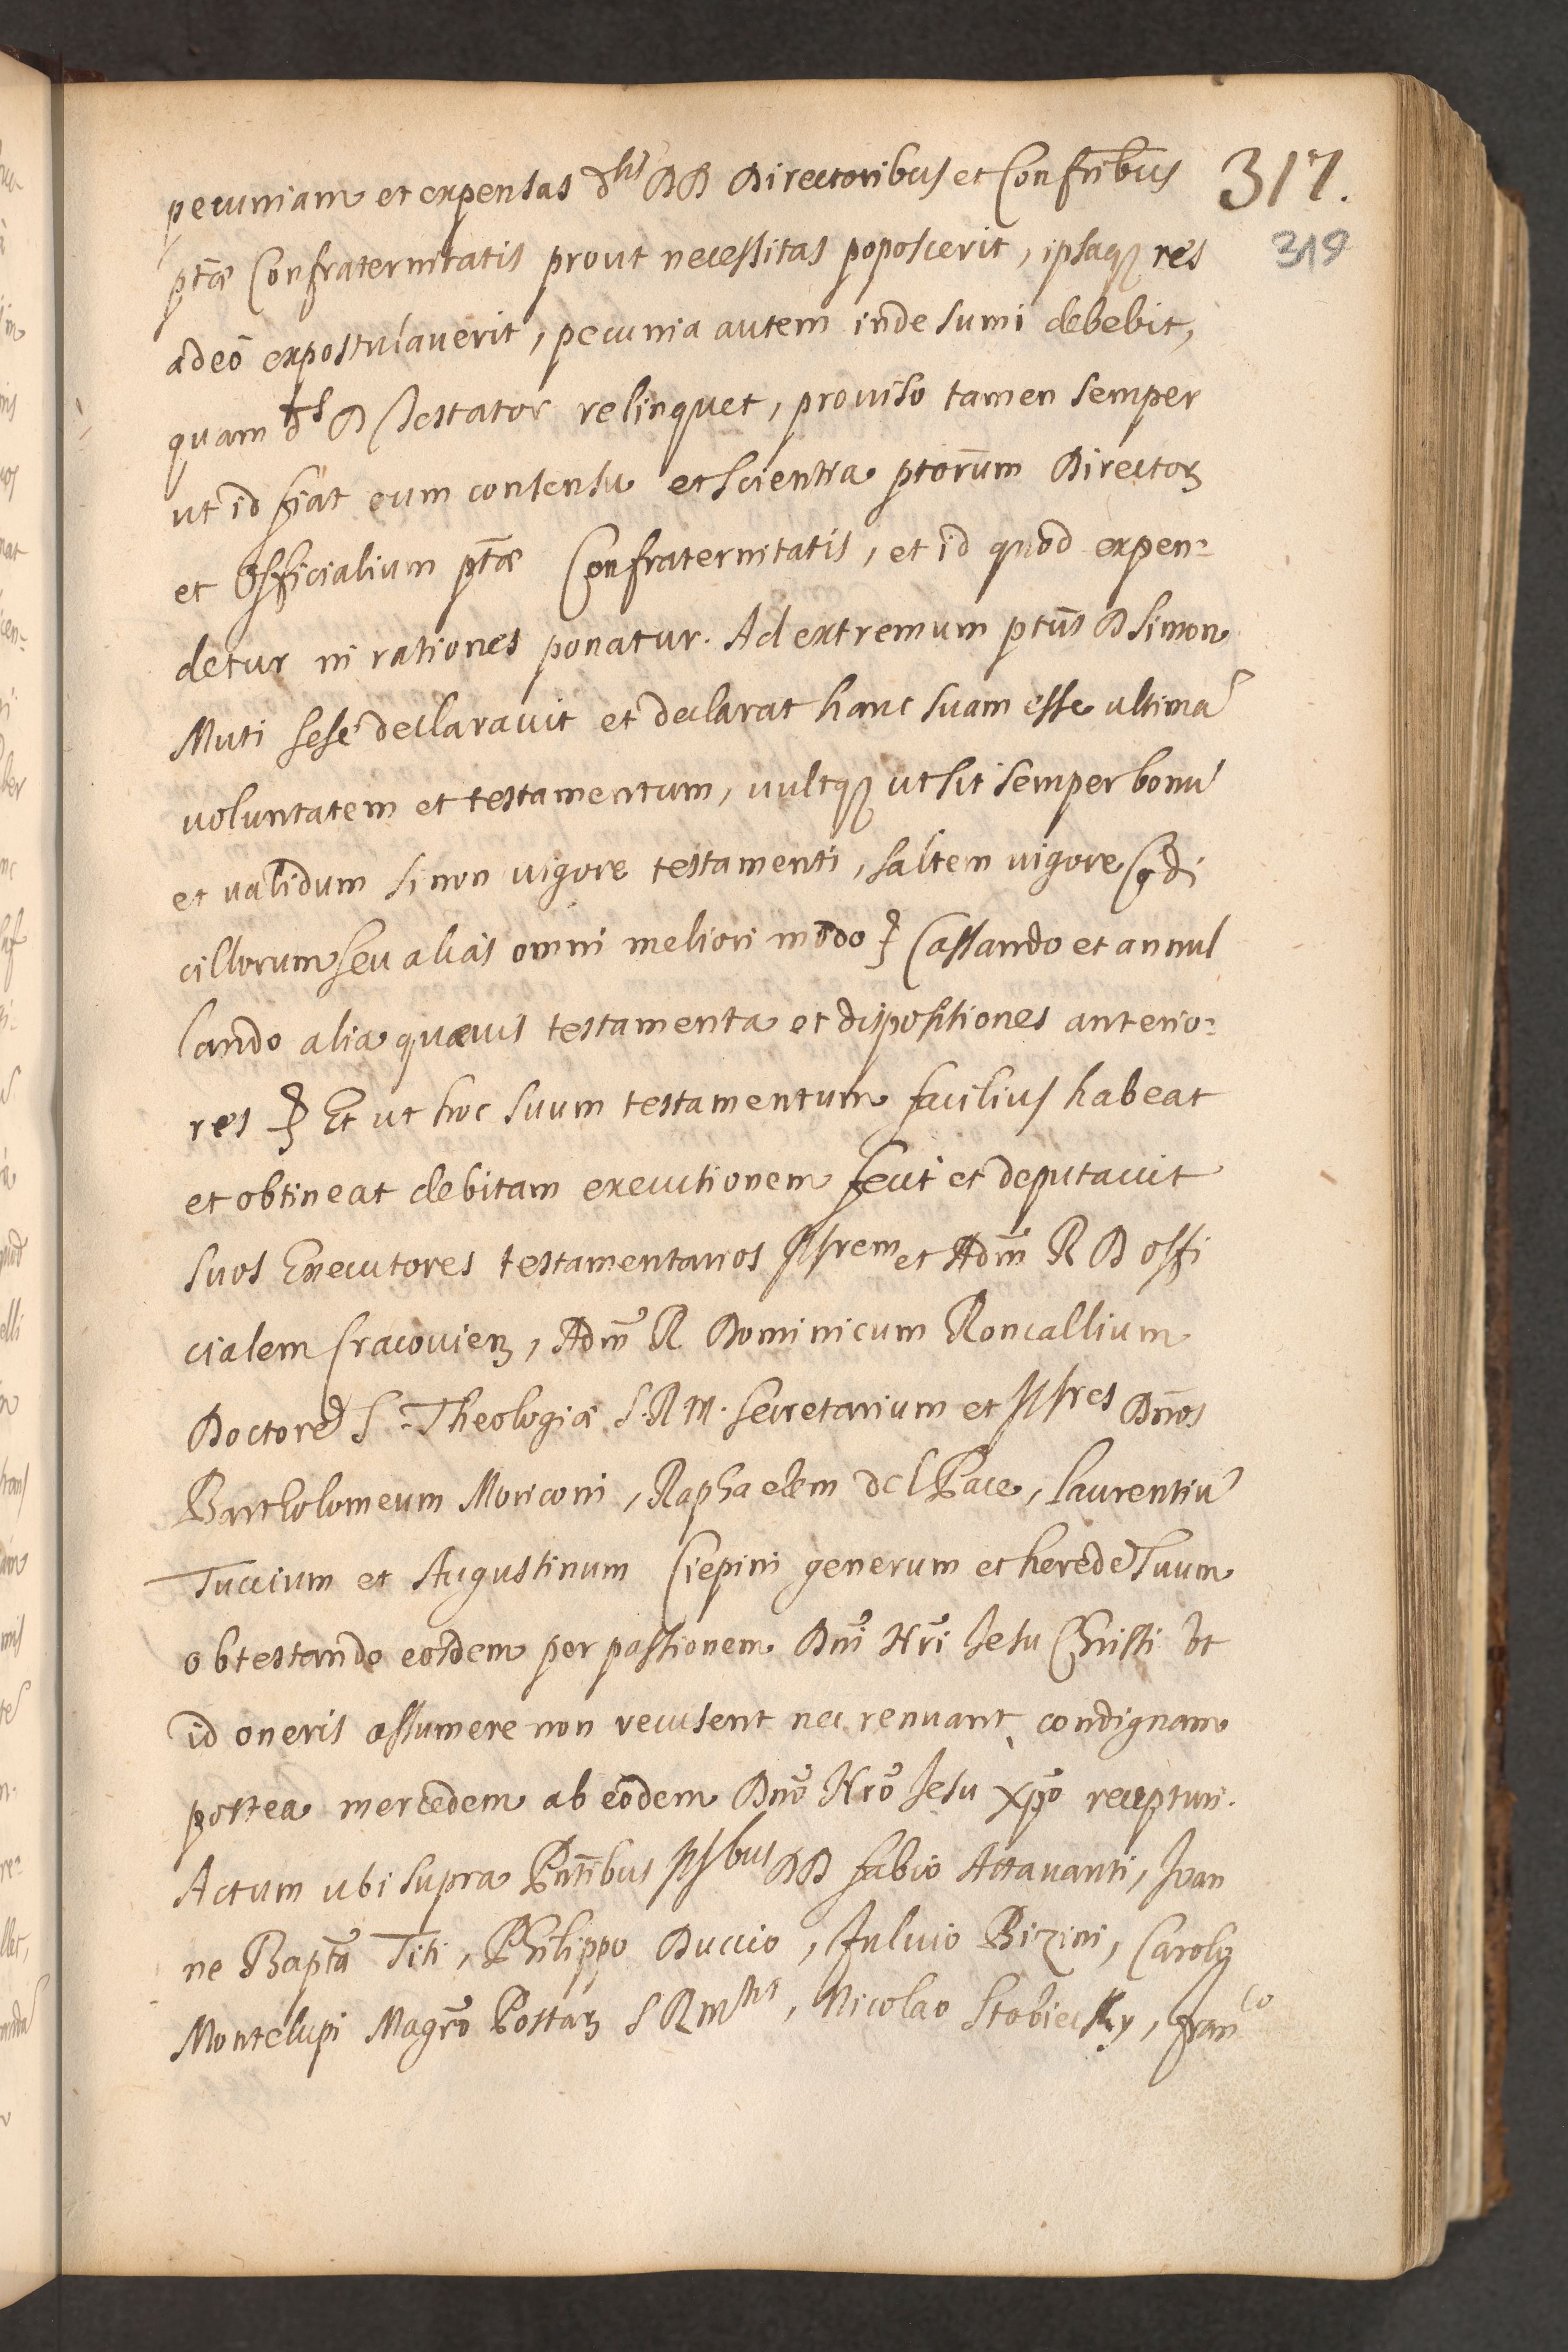 pecuniam et expensas dtis DD Directoribus et Confribus 317.
ptæ Confraternitatis prout necessitas poposcerit, ipsaq3 res 319
adeò expostulaverit, pecunia autem inde sumi debebit,
quam ds D Testator relinquet, proviso tamen semper
ut id fiat cum consensu et scientia ptorum Director3
et Officialium ptæ Confraternitatis, et id quod expen=
detur in rationes ponatur. Ad extremum ptus D Simon
Muti sesè declaravit et declarat hanc suam esse ultimã
voluntatem et testamentum, vultq3 ut sit semper bonũ
et validum si non vigore testamenti, saltem vigore Codi
cillorum seu aliàs omni meliori modo Cassando et annul
lando alia quævis testamenta et dispositiones anterio=
res Et ut hoc suum testamentum facilius habeat
et obtineat debitam executionem fecit et deputavit
suos Executores testamentarios et Adm R D Offi
cialem Cracovien3, Adm R Dominicum Roncallium
Doctorẽ S. Theologiæ S. R M. Secretarium et Dnos
Bartholomeum Moriconi, Raphaelem del Pace, Laurentiũ
Tuccium et Augustinum Ciepini generum et heredẽ suum
obtestando eosdem per passionem Dni Nri Jesu Christi ut
id oneris assumere non recusent nec renuant condignam
postea mercedem ab eodem Dno Nro Jesu Xpo recepturi.
Actum ubi supra Pntibus DD Fabio Attavanti, Joan
ne Bapta Titi, Philippo Duccio, Fulvio Bizini, Carolo
Montelupi Magro Postar3 S R Mtis, Nicolao Stobiecky, Franco